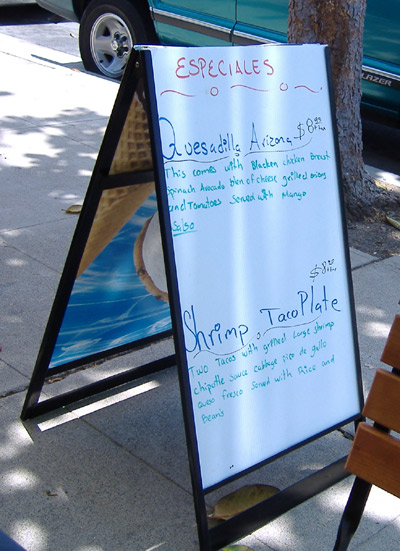 ESPECIALES
Quesadilla Arizona $8
This comes with Blacken chicken Breast
Spinach Avocado blen of cheese grilled onions
and Tomatoes Served with Mango
Salsa
$8
Shrimp Taco Plate
Two Tacos with grilled Large Shrimp
chipotle sauce cabbage pico de gallo
queso fresco served with Rice and
Beans
BLAZER